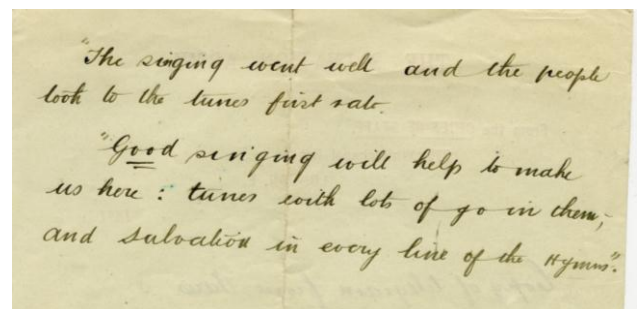 "The singing went well and the people
took to the tunes first rate.
"Good singing will help to make
us here : tunes with lots of go in them,
and salvation in every line of the Hymns".